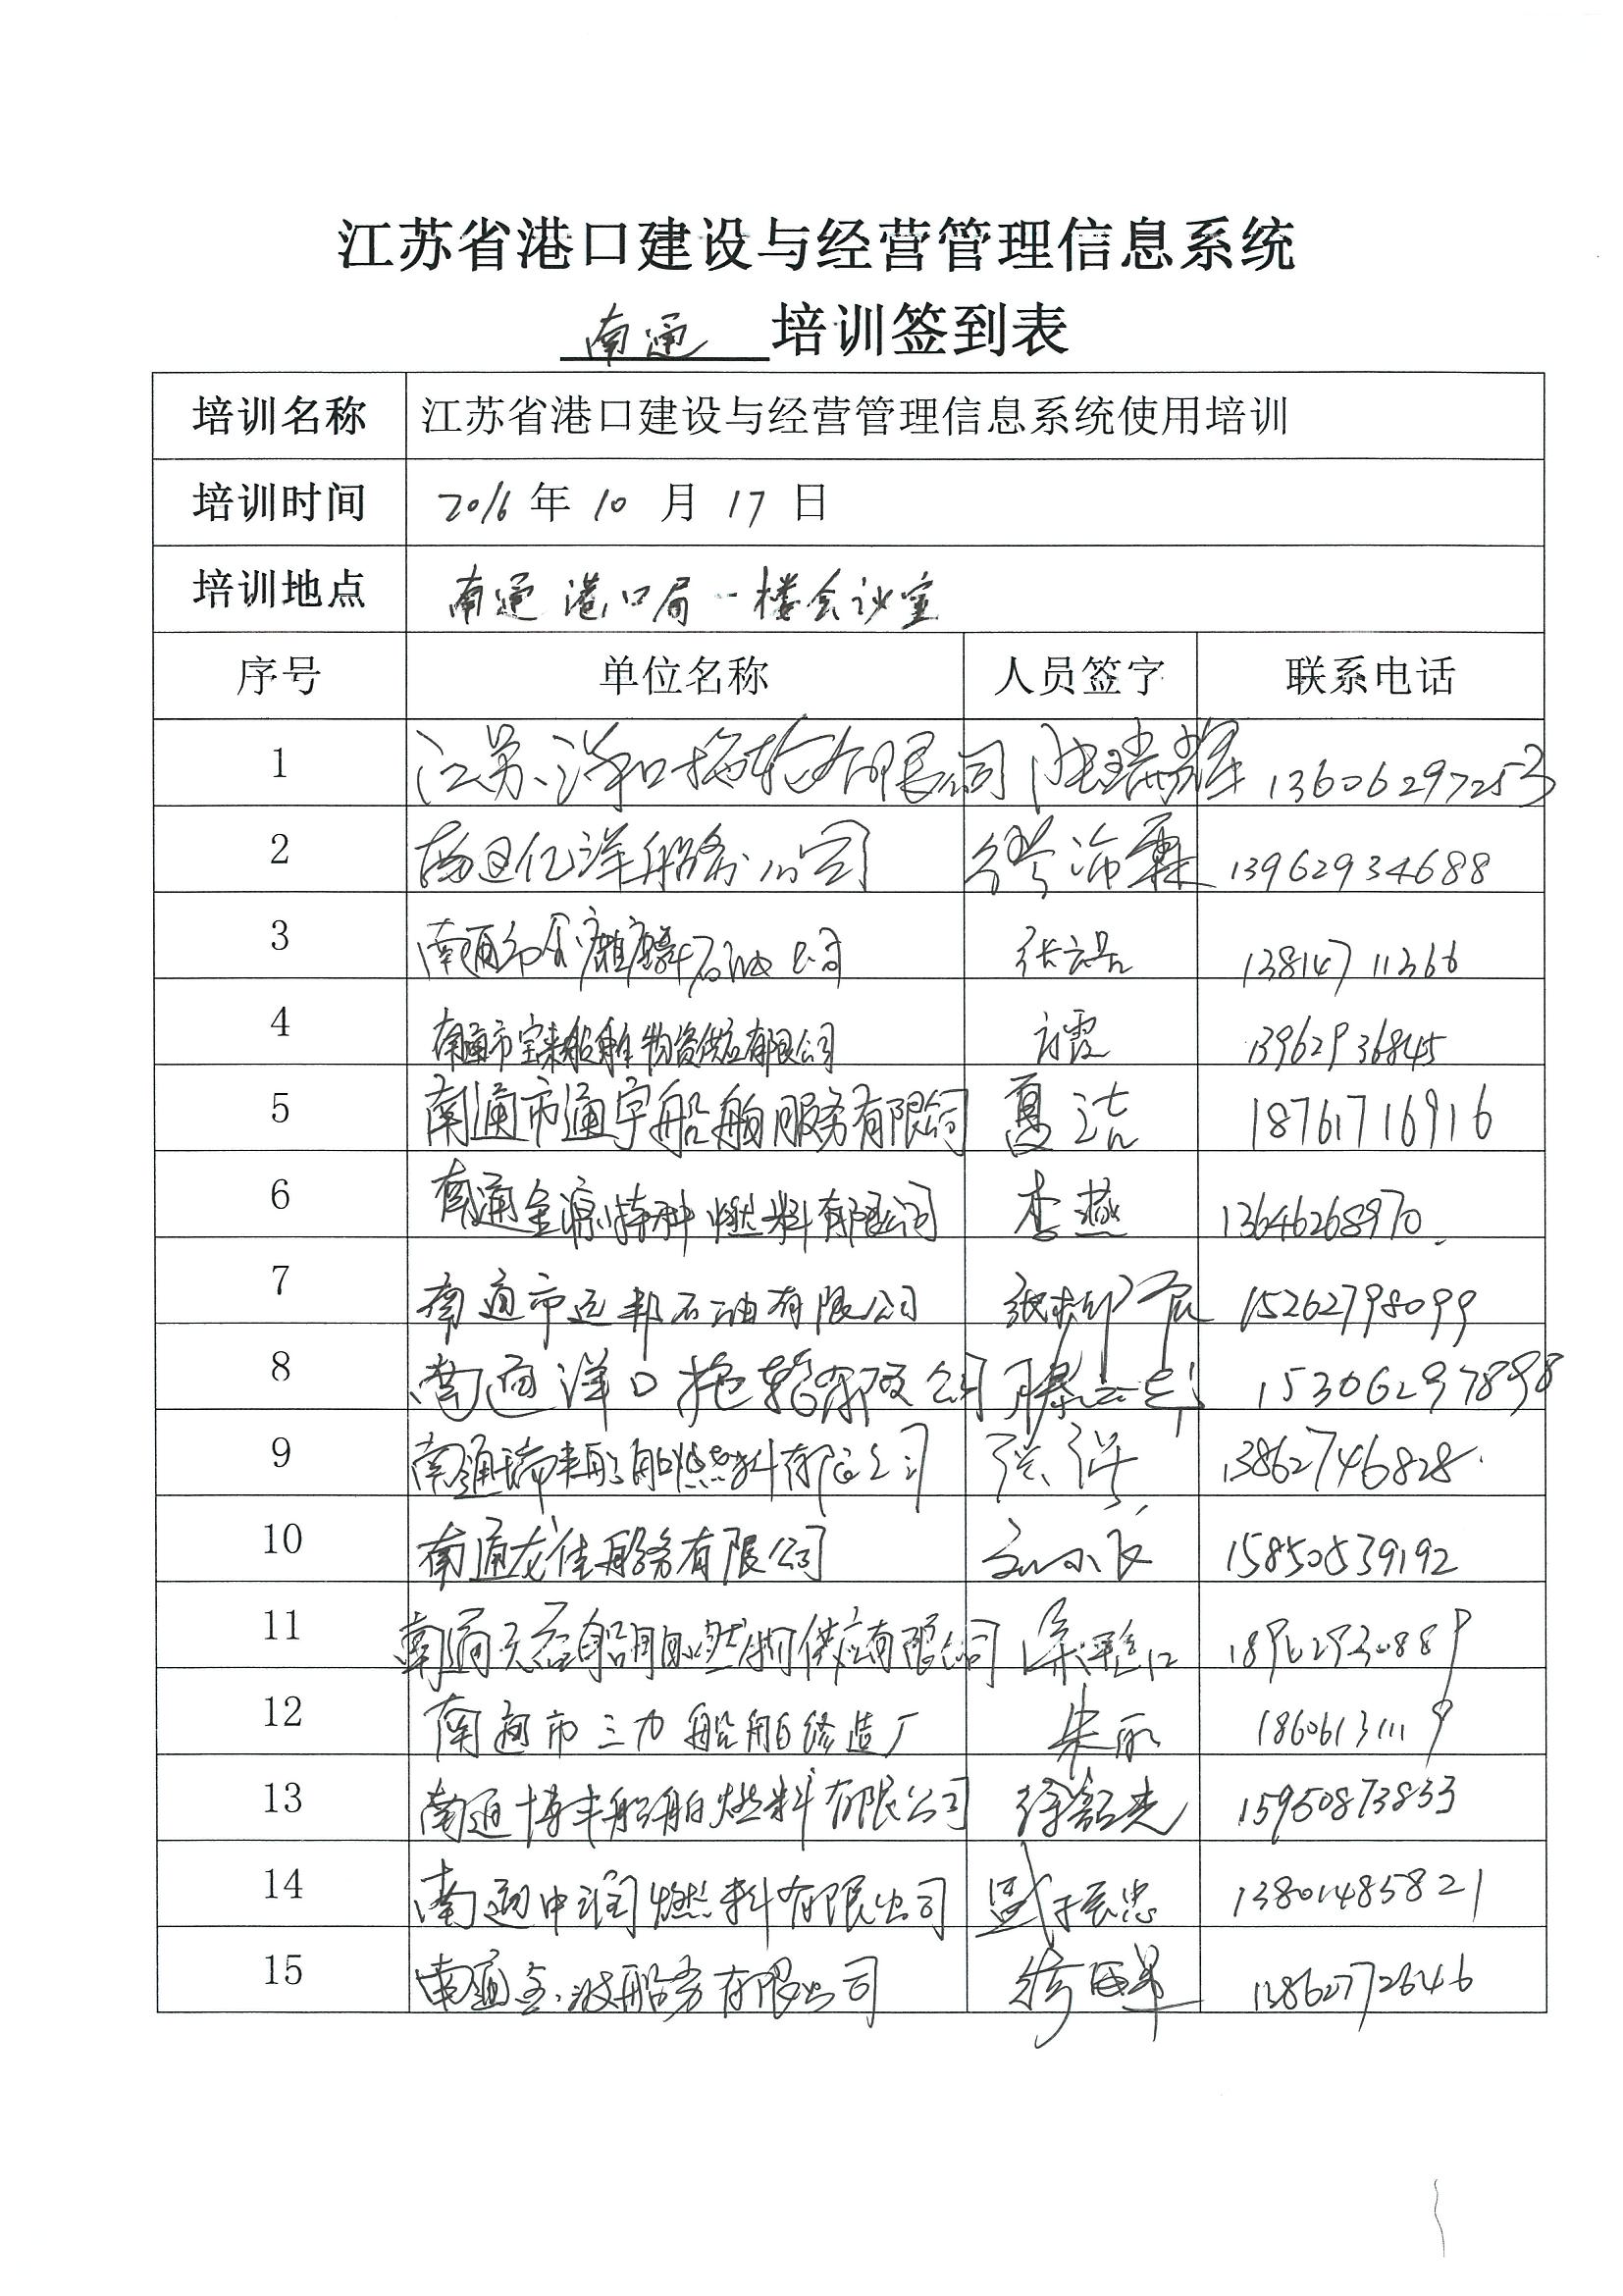 江苏省港口建设与经营管理信息系统
南通 培训签到表
培训名称 江苏省港口建设与经营管理信息系统使用培训
培训时间 2016 年 10 月 17 日
培训地点 南通港口局一楼会议室
序号 单位名称 人员签字 联系电话
1 江苏洋口拖轮有限公司 陆瑞辉 13606297253
2 南通亿洋船务公司 13962934688
3 南通市金麒麟石油公司 13814711366
4 南通市宝来船舶物资供应有限公司 13962936845
5 南通市通宇船舶服务有限公司 夏洁 18761716916
6 南通金源特种燃料有限公司 李燕 13646268970
7 南通市远邦石油有限公司 15262798099
8 南通洋口拖轮有限公司 15306297898
9 南通瑞丰船舶燃料有限公司 13862746828
10 南通龙佳船务有限公司 15850539192
11 南通 船舶 燃物供应有限公司 18962930889
12 南通市三力船舶修造厂 朱丽 18606131119
13 南通博丰船舶燃料有限公司 徐韶光 15950873833
14 南通中润燃料有限公司 盛振忠 13801485821
15 南通金波船务有限公司 13862772646